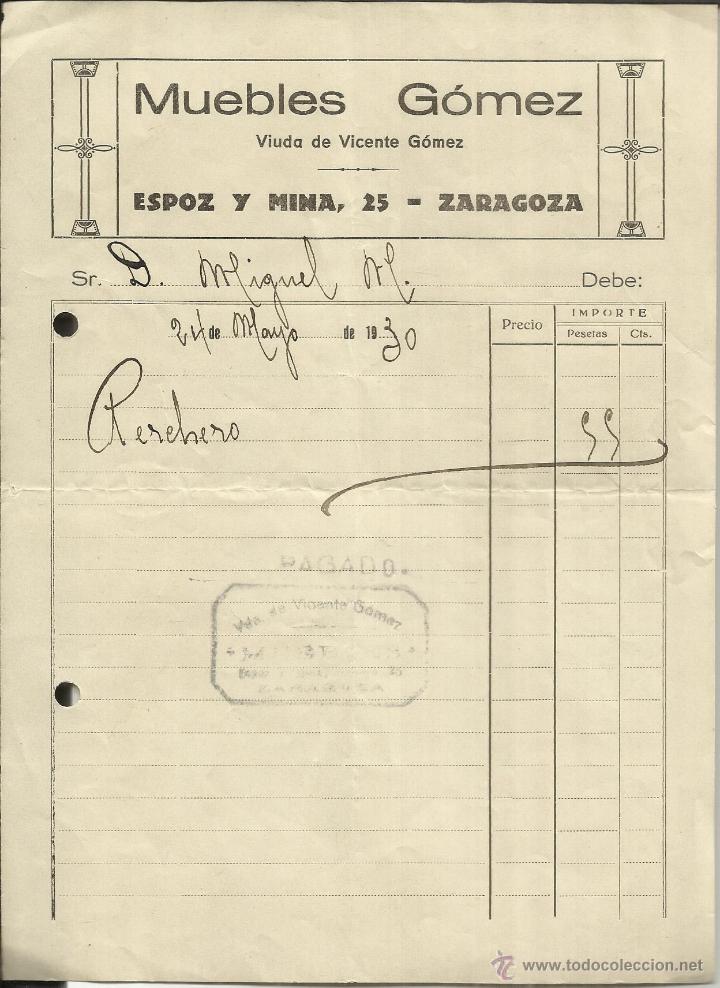 Muebles Gómez
Viuda de Vicente Gómez
ESPOZ Y MINA, 25 - ZARAGOZA
Sr. D. Miguel M. Debe:
24 de Mayo de 1930
Precio
IMPORTE
Pesetas Cts.
Perchero 55
PAGADO.
Vda. de Vicente Gómez
ZARAGOZA
www.todocoleccion.net